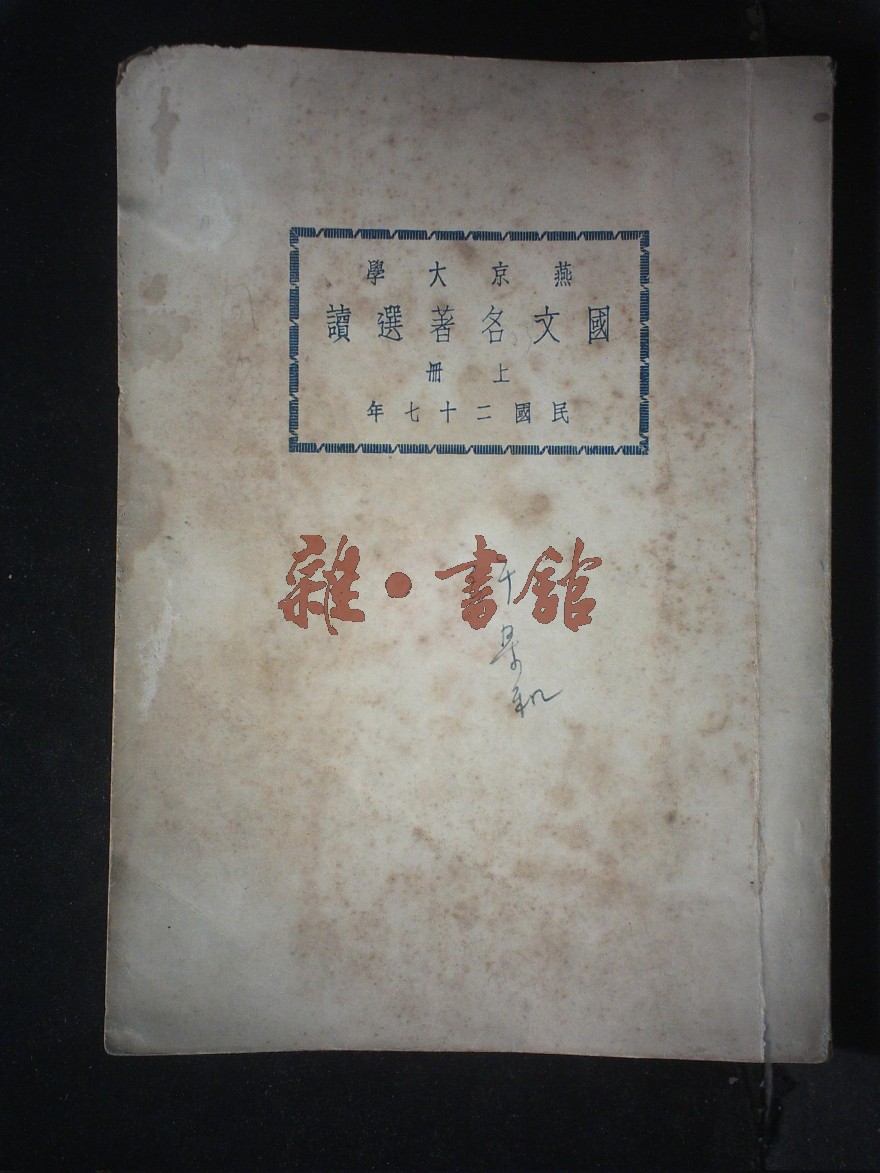 燕京大學
國文名著選讀
上冊
民國二十七年
雜•書館